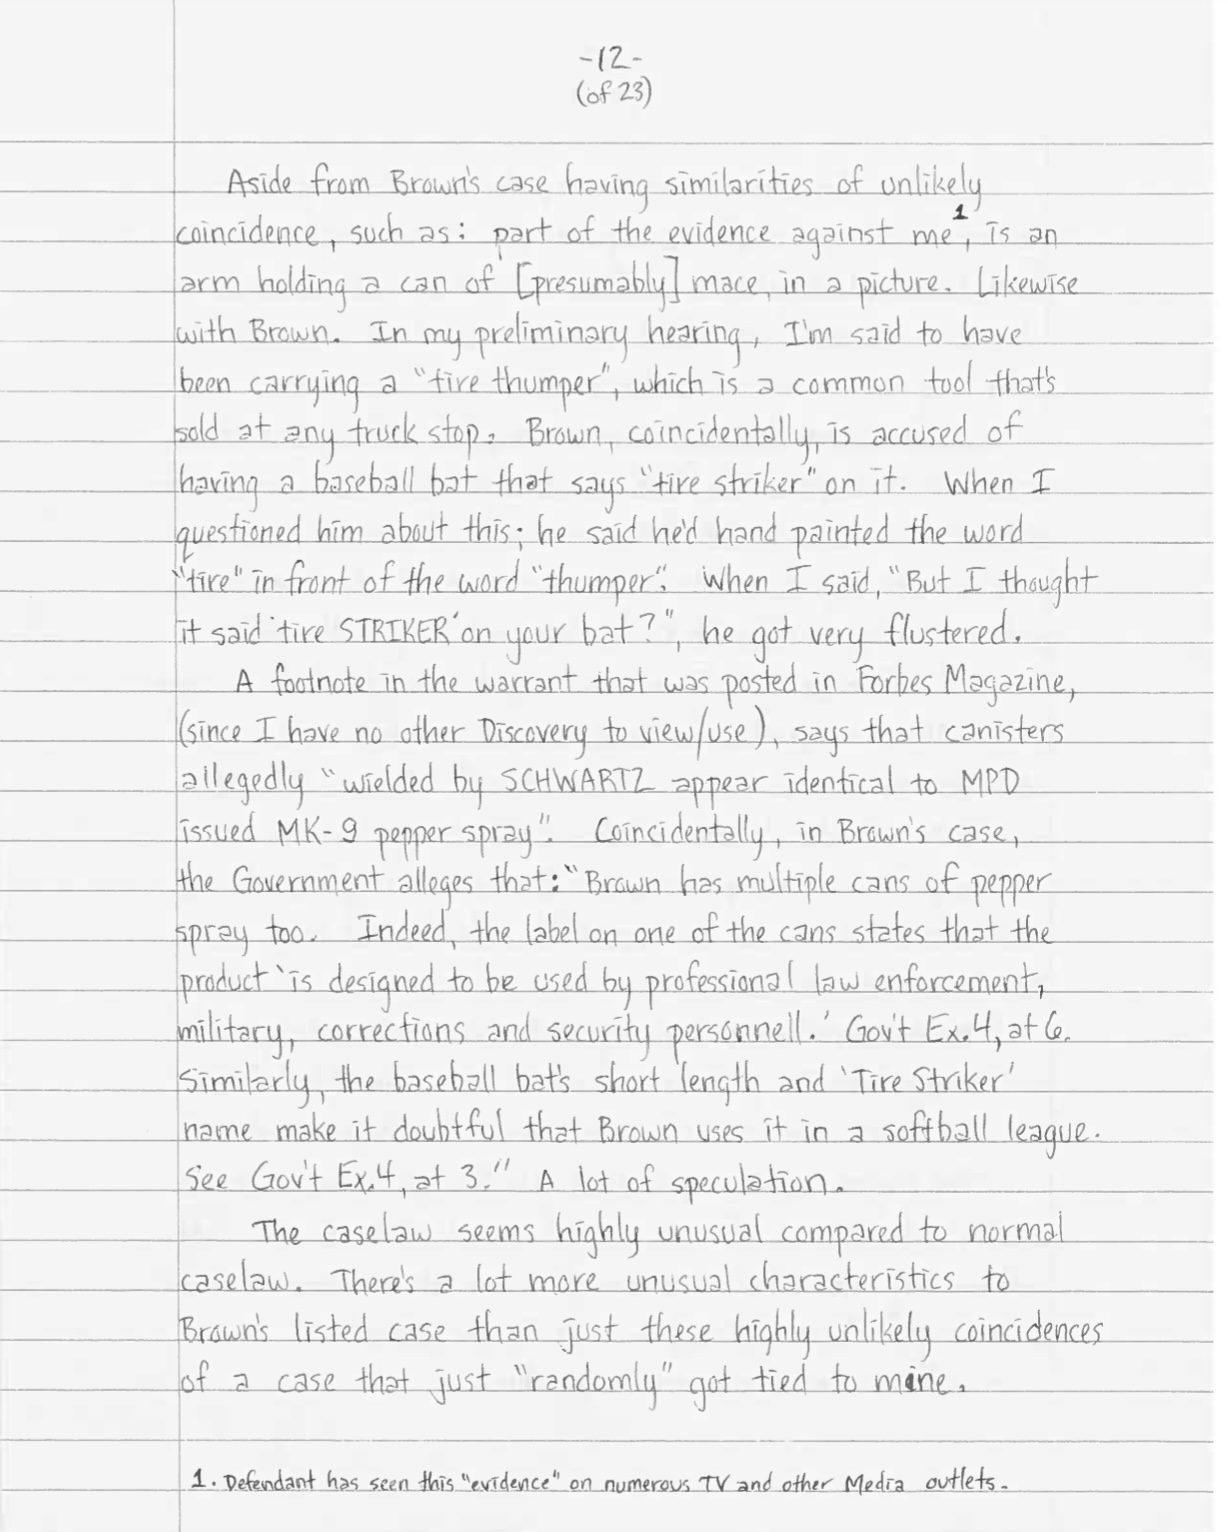 -12-
(of 23)
Aside from Brown's case having similarities of unlikely
coincidence, such as: part of the evidence against me¹, is an
arm holding a can of [presumably] mace, in a picture. Likewise
with Brown. In my preliminary hearing, I'm said to have
been carrying a "tire thumper", which is a common tool that's
sold at any truck stop. Brown, coincidentally, is accused of
having a baseball bat that says "tire striker" on it. When I
questioned him about this; he said he'd hand painted the word
"tire" in front of the word "thumper". When I said, "But I thought
it said 'tire STRIKER' on your bat?", he got very flustered.
A footnote in the warrant that was posted in Forbes Magazine,
(since I have no other Discovery to view/use), says that canisters
allegedly "wielded by SCHWARTZ appear identical to MPD
issued MK-9 pepper spray". Coincidentally, in Brown's case,
the Government alleges that: "Brown has multiple cans of pepper
spray too. Indeed, the label on one of the cans states that the
product 'is designed to be used by professional law enforcement,
military, corrections and security personnell.' Gov't Ex. 4, at 6.
Similarly, the baseball bat's short length and 'Tire Striker'
name make it doubtful that Brown uses it in a softball league.
See Gov't Ex. 4, at 3." A lot of speculation.
The caselaw seems highly unusual compared to normal
caselaw. There's a lot more unusual characteristics to
Brown's listed case than just these highly unlikely coincidences
of a case that just "randomly" got tied to mine.
1. Defendant has seen this "evidence" on numerous TV and other Media outlets.